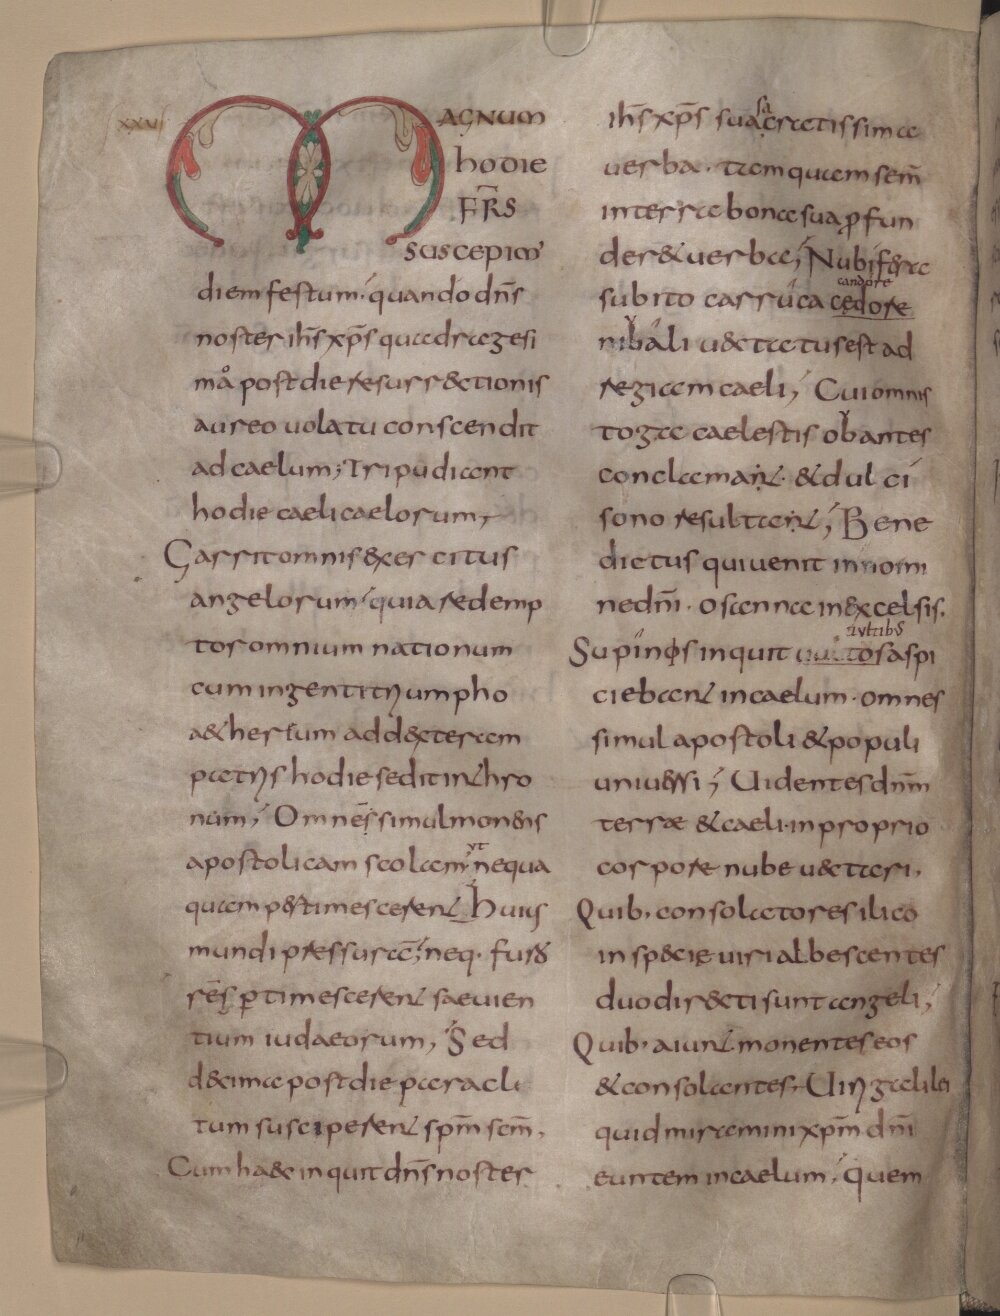 xxvi
MAGNUM
hodie
FR̄S
suscepim'
diem festum; quando dn̄s
noster ih̄s xp̄s quadragesi
ma post die resurrectionis
aureo uolatu conscendit
ad caelum; Tripudient
hodie caeli caelorum,
Garrit omnis exercitus
angelorum; quia redemp
tor omnium nationum
cum ingenti tryumpho
aetherium ad dexteram
patrys hodie sedit in thro
num; Omnes simul mon&is
apostolicam scolam ut nequa
quam p&timescerent huius
mundi pressuram; neq. furo
res p̱timescerent saeuien
tium iudaeorum; Sed
decima post die paracli
tum susciperent sp̄m sc̄m.
Cum haec inquit dn̄s noster
ih̄s xp̄s sua sacratissima
uerba. tamquam semen
in terra bona sua ꝓfun
deret uerba; Nubifera
candore
subito carruca cedore
nibali uectatus est ad
regiam caeli; Cui omnis
toga caelestis obantes
conclamant. & dulci
sono resultant; Bene
dictus qui uenit in nomi
ne dn̄i. osanna in excelsis.
uultibus
Supinos inquit uultos aspi
ciebant in caelum. omnes
simul apostoli & populi
uniuersi; Uidentes dn̄m
terrae & caeli in proprio
corpore nube uectari,
Quib, consolatores ilico
in specie uiri albescentes
duo directi sunt angeli;
Quib, aiunt monentes eos
& consolantes, Uiri galilei
quid miramini xp̄m dn̄i
euntem in caelum; quem